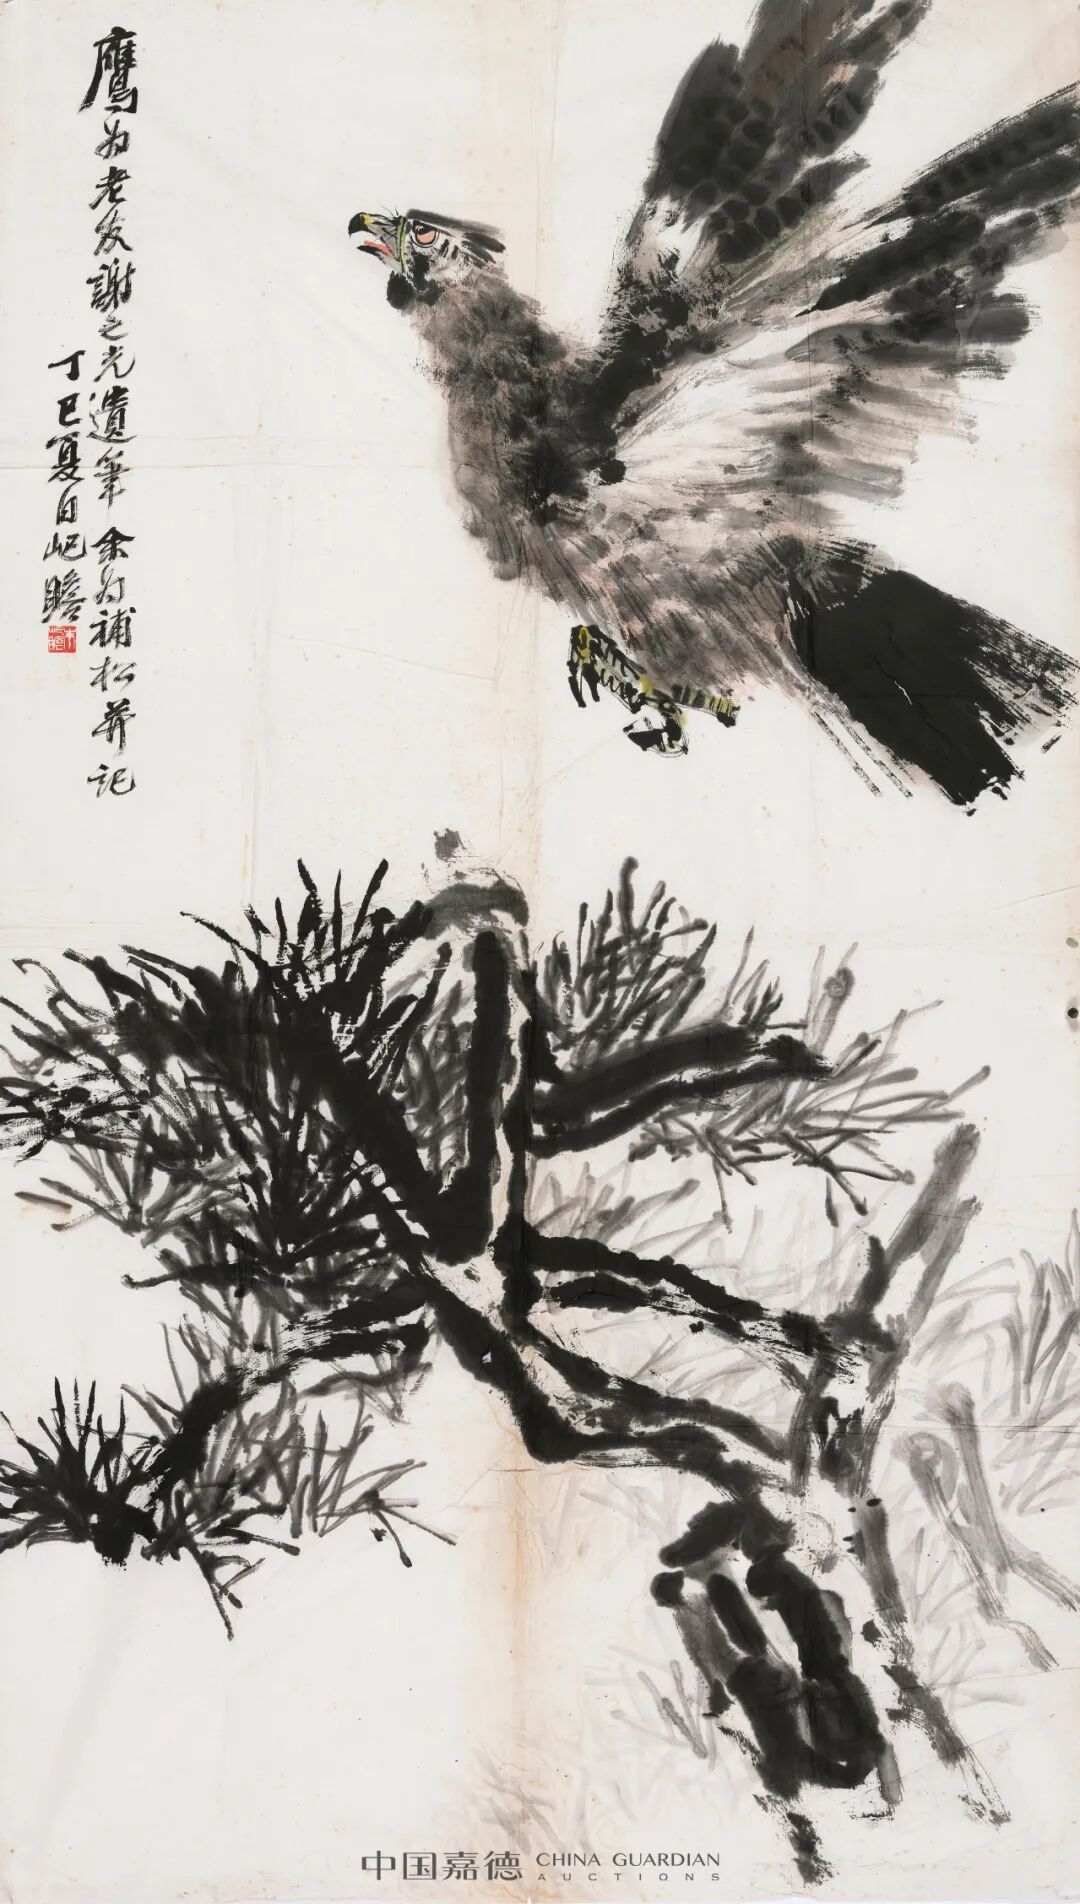 鷹为老友謝之光遺筆余为補松并记
丁巳夏日屺瞻
中国嘉德 CHINA GUARDIAN
AUCTIONS